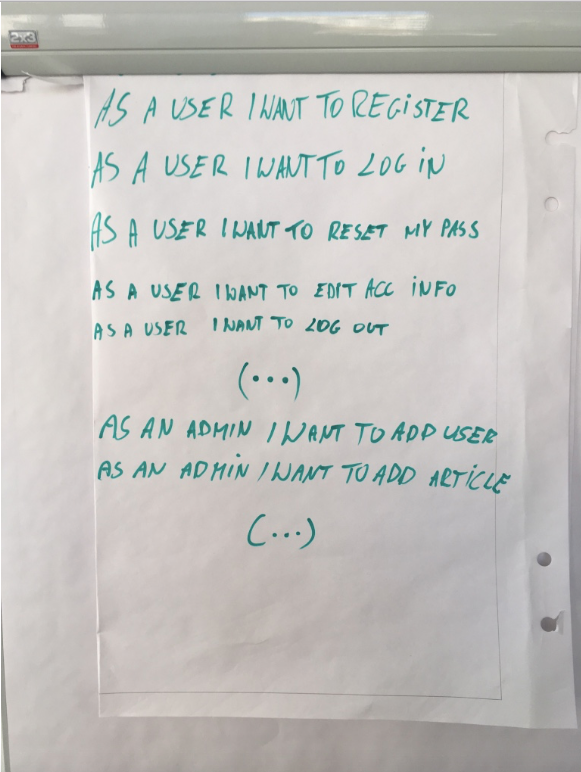 2x3
AS A USER I WANT TO REGISTER
AS A USER I WANT TO LOG IN
AS A USER I WANT TO RESET MY PASS
AS A USER I WANT TO EDIT ACC INFO
AS A USER I WANT TO LOG OUT
(...)
AS AN ADMIN I WANT TO ADD USER
AS AN ADMIN I WANT TO ADD ARTICLE
(...)